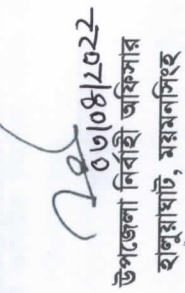 ০৬/০৪/২০২২
উপজেলা নির্বাহী অফিসার
হালুয়াঘাট, ময়মনসিংহ